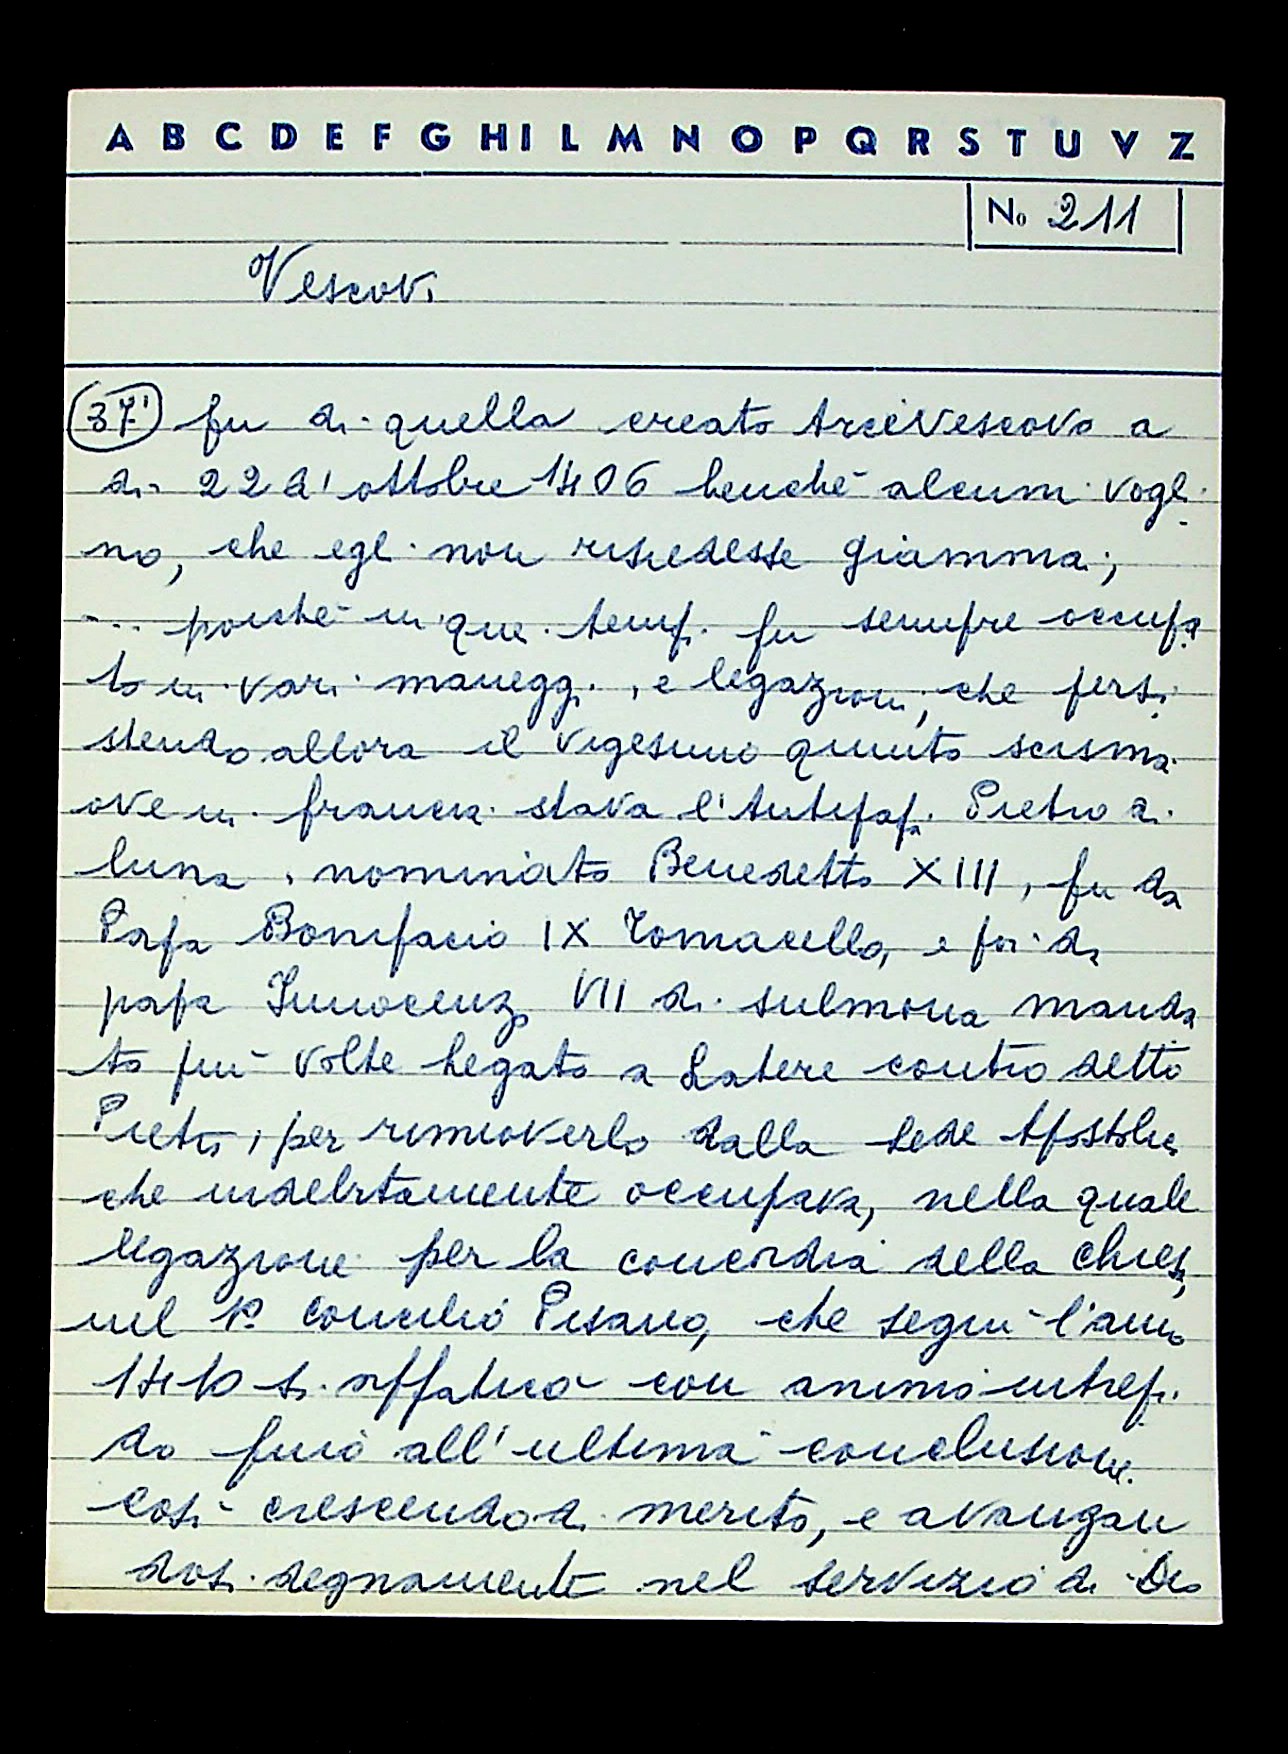 A B C D E F G H I L M N O P Q R S T U V Z
No 211
Vescovi
37' fu di quella creato Arcivescovo a
di 22 d'ottobre 1406 benché alcuni vogli
no, che egli non risiedesse giammai;
... poiché in que' tempi fu sempre occupa
to in vari maneggi, e legazioni, che persi
stendo allora il vigesimo quinto scisma
ove in francia stava l'Antipapa Pietro di
luna, nominato Benedetto XIII, fu da
Papa Bonifacio IX Tomacello, e poi da
papa Innocenzo VII di sulmona manda
to più volte legato a Latere contro detto
Pietro, per rimuoverlo dalla Sede Apostolica
che indebitamente occupava, nella quale
legazione per la concordia della Chiesa,
nel 1° Concilio Pisano, che seguì l'anno
1410 si affaticò con animo intrepi
do fino all'ultima conclusione.
Così crescendo di merito, e avanzan
dosi degnamente nel servizio di Dio